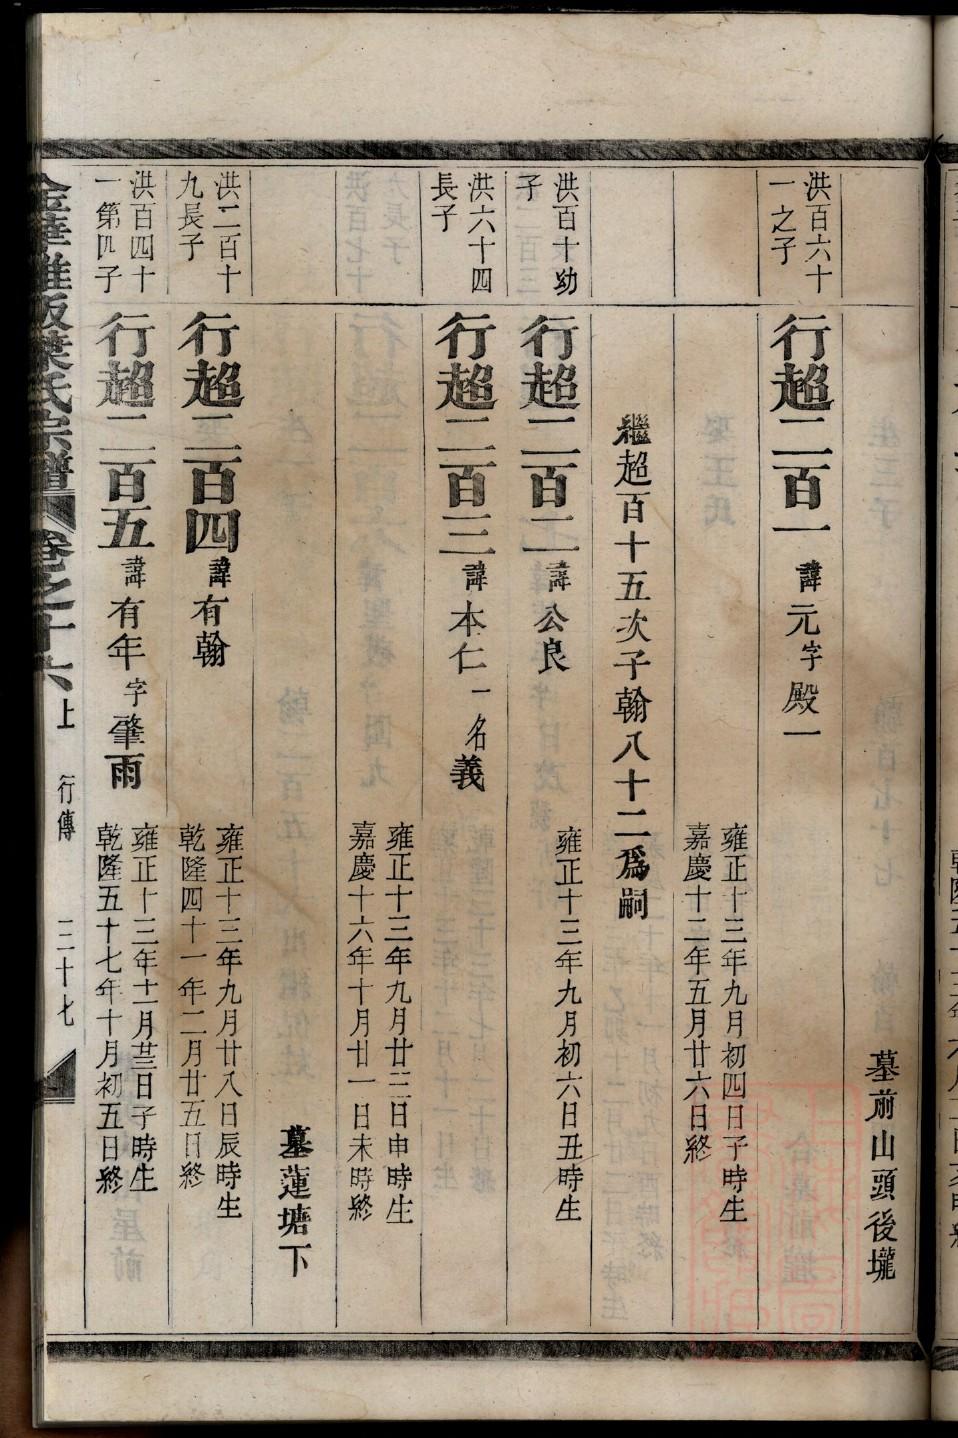 墓前山頭後壠
洪百六十
一之子
行超二百一 諱元字殿一
雍正十三年九月初四日子時生
嘉慶十二年五月廿六日終
繼超百十五次子翰八十二爲嗣
洪百十幼
子
行超二百二 諱公良
雍正十三年九月初六日丑時生
洪六十四
長子
行超二百三 諱本仁一名義
雍正十三年九月廿三日申時生
嘉慶十六年十月廿一日未時終
墓蓮塘下
洪二百十
九長子
行超二百四 諱有翰
雍正十三年九月廿八日辰時生
乾隆四十一年二月廿五日終
洪百四十
一第四子
行超二百五 諱有年字肇雨
雍正十三年十一月廿三日子時生
乾隆五十七年十月初五日終
金華雅畈葉氏宗譜 卷之十六上 行傳 三十七